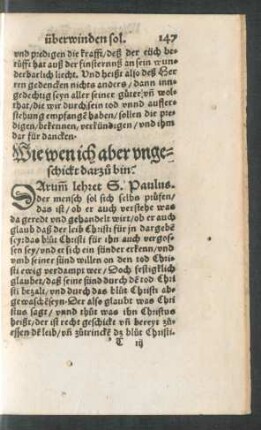 überwinden sol. 147
vnd predigen die krafft/deß der eüch be-
rüfft hat auß der finsternuß an sein wun-
derbarlich liecht. Vnd heißt also deß Her-
ren gedencken nichts anders/dann inn-
gedechig seyn aller seiner güter/vñ wol-
that/die wir durch sein tod vnnd auffer-
stehung empfangẽ haben/sollen die pre-
digen/bekennen/verkündigen/vnd ihm
dar für dancken.
Wie wen ich aber vnge-
schickt darzů bin?
DArum̃ lehret S. Paulus.
der mensch sol sich selbs průfen/
das ist/ob er auch verstehe was
da geredt vnd gehandelt wirt/ob er auch
glaub daß der leib Christi für jn dargebẽ
sey:das blůt Christi für ihn auch vergos-
sen sey/vnd er sich ein sünder erkenn/vnd
vmb seiner sünd willen on den tod Chri-
sti ewig verdampt wer/Doch festigklich
glaubet/daß seine sünd durch dẽ tod Chri-
sti bezalt/vnd durch das blůt Christi ab-
gewaschẽ seyn. Der also glaubt was Chri-
stus sagt/vnnd thůt was ihn Christus
heißt/der ist recht geschickt vñ bereyt zů-
essen dẽ leib/vñ zůtrinckẽ dz blůt Christi.
T iij